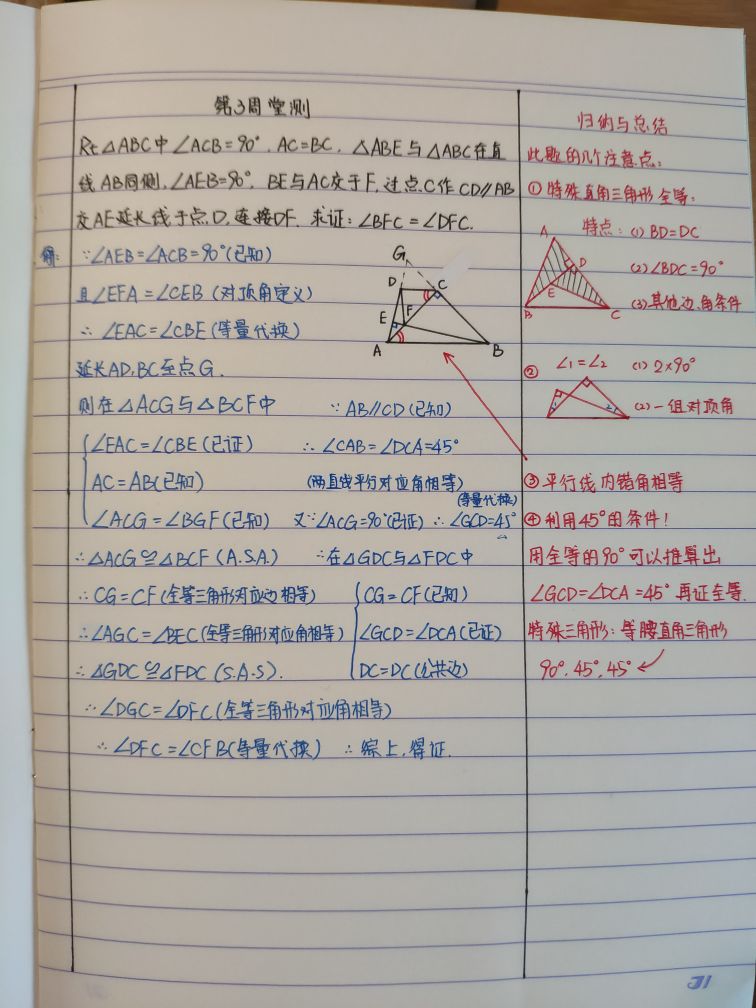 第3周堂测
Rt△ABC中∠ACB=90°，AC=BC，△ABE与△ABC在直
线AB同侧，∠AEB=90°，BE与AC交于F，过点C作CD∥AB
交AE延长线于点D，连接DF. 求证：∠BFC=∠DFC.
解：∵∠AEB=∠ACB=90°(已知)
且∠EFA=∠CEB（对顶角定义）
∴∠EAC=∠CBE(等量代换)
延长AD,BC至点G.
则在△ACG与△BCF中
∠EAC=∠CBE(已证)
AC=AB(已知)
∠ACG=∠BGF(已知)
∴△ACG≌△BCF (A.S.A)
∴CG=CF(全等三角形对应边相等)
∴∠AGC=∠BEC(全等三角形对应角相等)
∴△GDC≌△FDC (S.A.S).
∴∠DGC=∠DFC(全等三角形对应角相等)
∴∠DFC=∠CFB(等量代换) ∴综上，得证.
∵AB∥CD(已知)
∴∠CAB=∠DCA=45°
(两直线平行对应角相等)
(等量代换)
又∵∠ACG=90°(已证) ∴∠GCD=45°
∴在△GDC与△FDC中
CG=CF(已知)
∠GCD=∠DCA(已证)
DC=DC(公共边)
G
D
C
E
F
A
B
归纳与总结
此题的几个注意点：
①特殊直角三角形全等：
特点：(1) BD=DC
(2)∠BDC=90°
(3)其他边、角条件
A
D
E
B
C
② ∠1=∠2 (1) 2×90°
(2)一组对顶角
1
2
③平行线内错角相等
④利用45°的条件！
用全等的90°可以推算出
∠GCD=∠DCA=45°再证全等.
特殊三角形：等腰直角三角形
90°.45°.45°
31